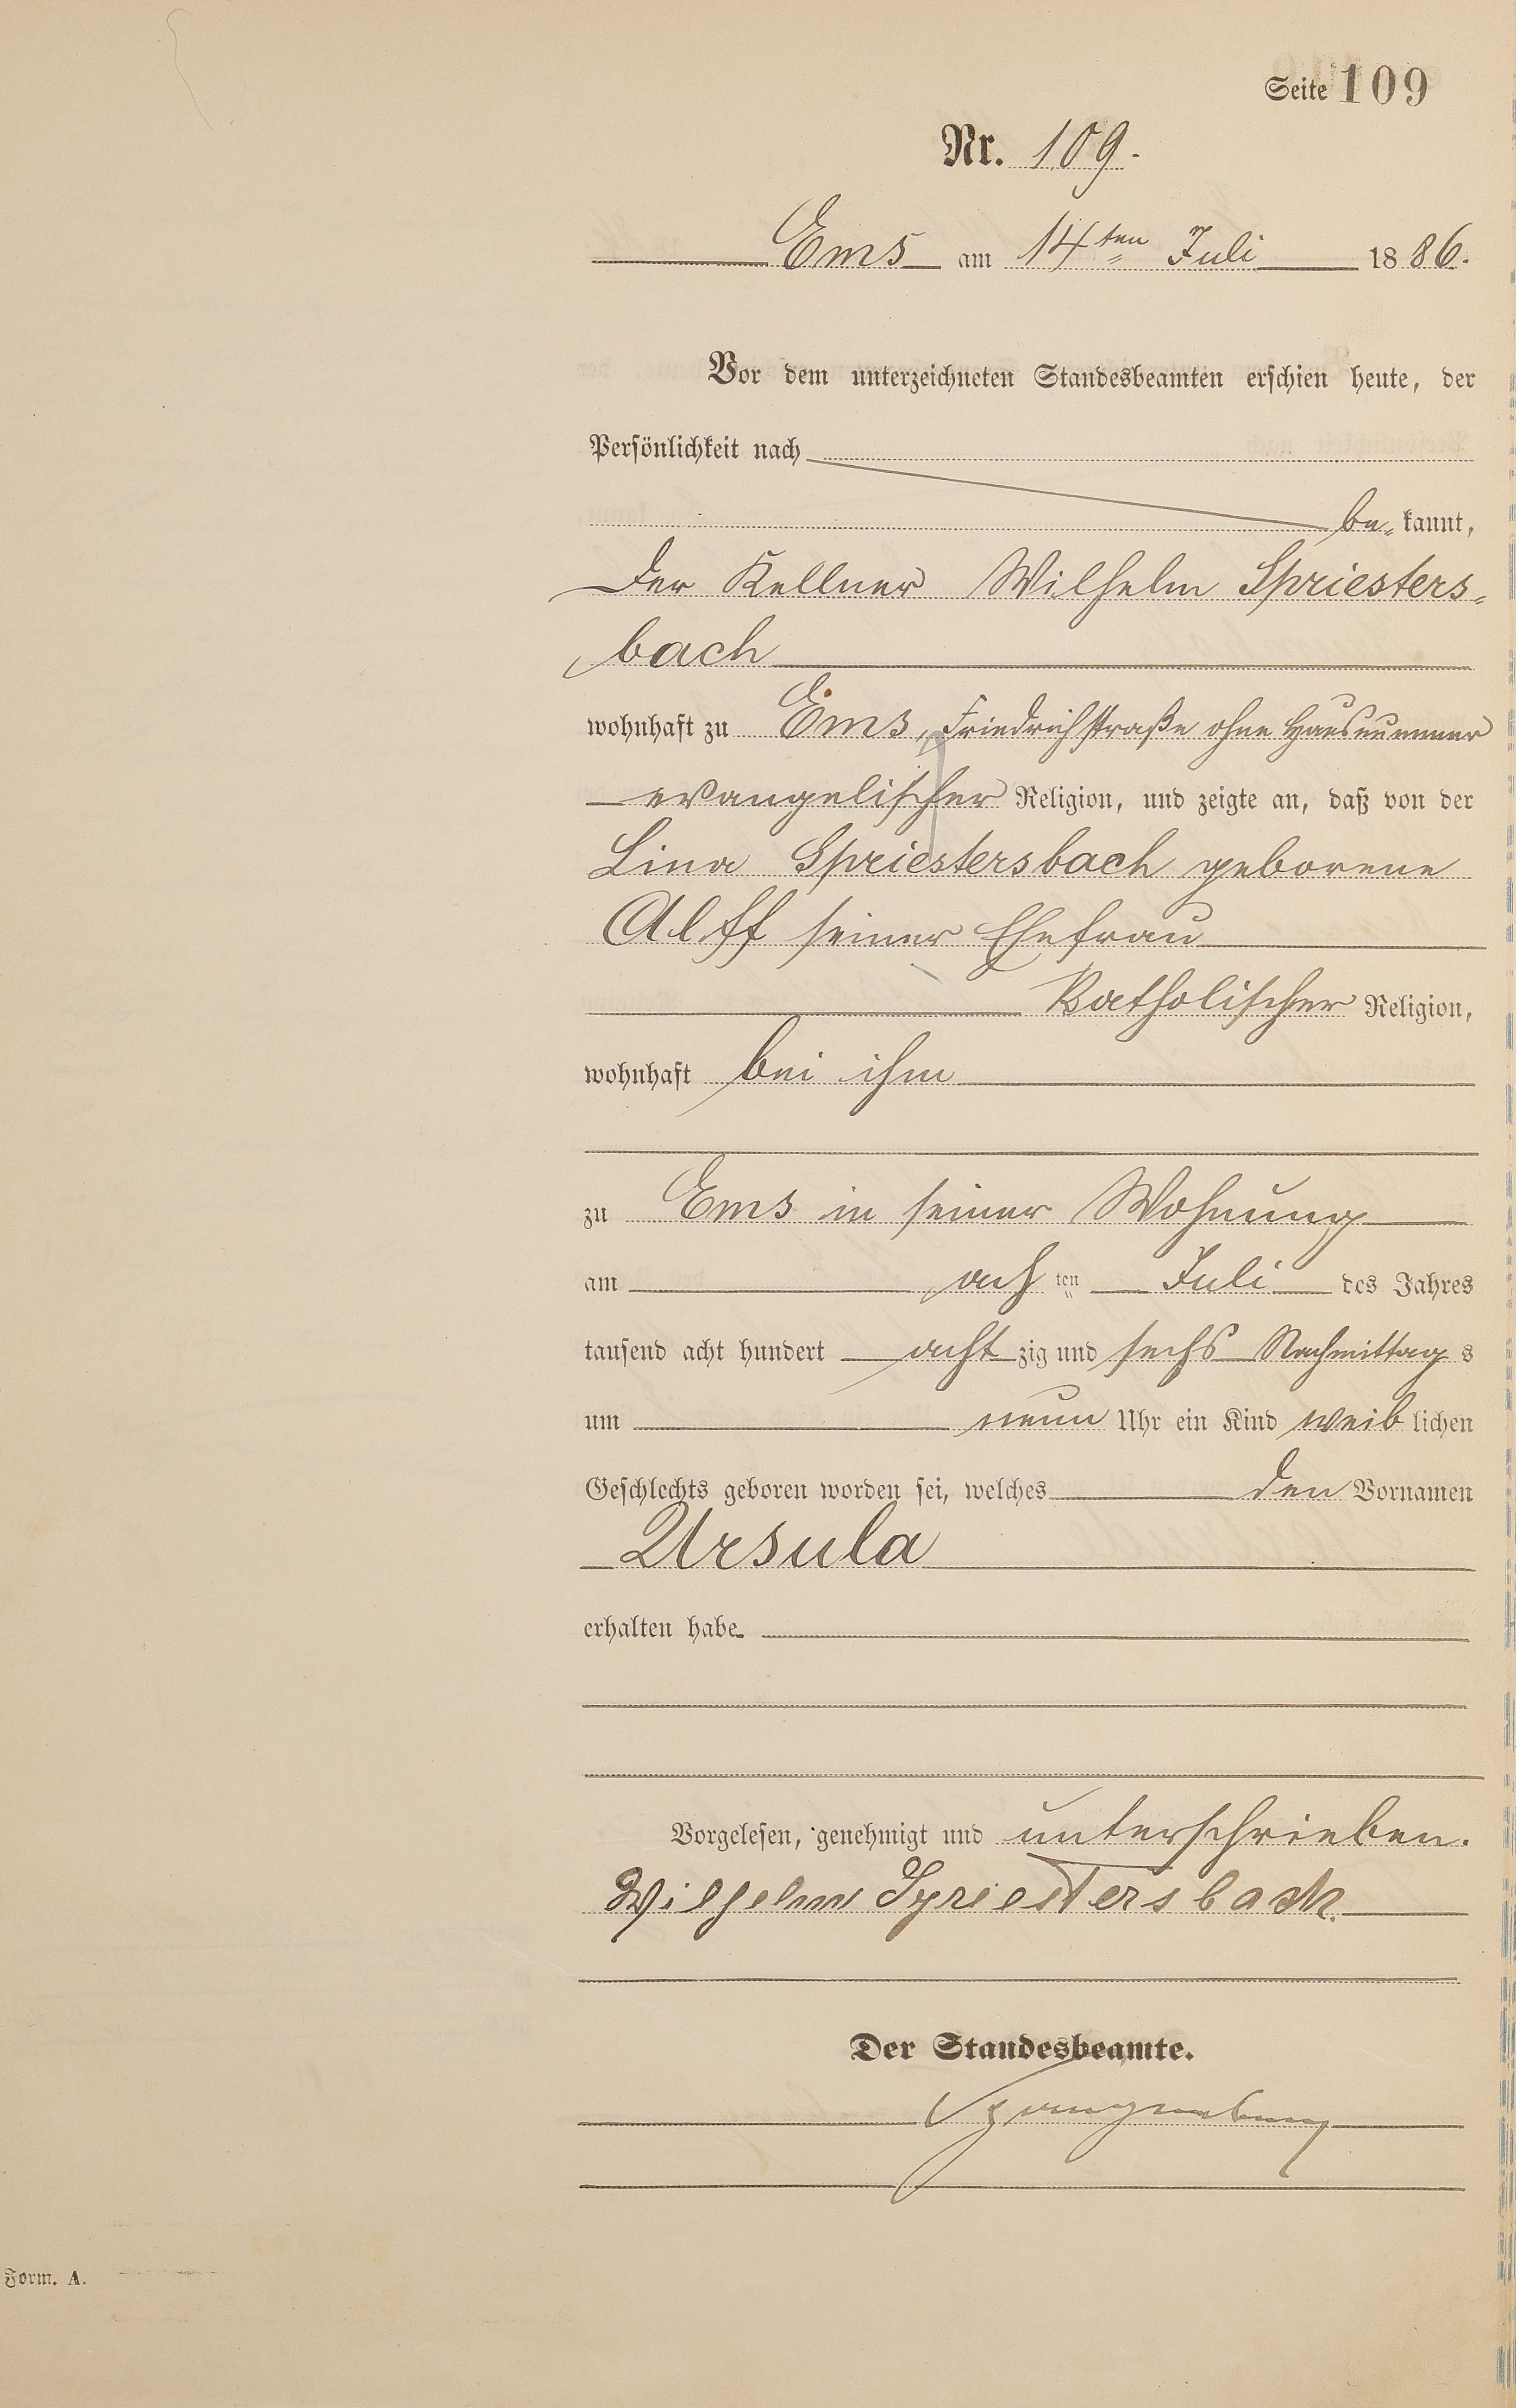 Seite 109
Nr. 109.
Ems am 14ten Juli 1886.
Vor dem unterzeichneten Standesbeamten erschien heute, der
Persönlichkeit nach
be- kannt,
der Kellner Wilhelm Spriesters-
bach
wohnhaft zu Ems, Friedrichstraße ohne Hausnummer
evangelischer Religion, und zeigte an, daß von der
Lina Spriestersbach geborene
Alff seiner Ehefrau
katholischer Religion,
wohnhaft bei ihm
zu Ems in seiner Wohnung
am ach ten Juli des Jahres
tausend acht hundert acht zig und sechs Nachmittag s
um neun Uhr ein Kind weib lichen
Geschlechts geboren worden sei, welches den Vornamen
Ursula
erhalten habe
Vorgelesen, genehmigt und unterschrieben.
Wilhelm Spriestersbach.
Der Standesbeamte.
Form. A.